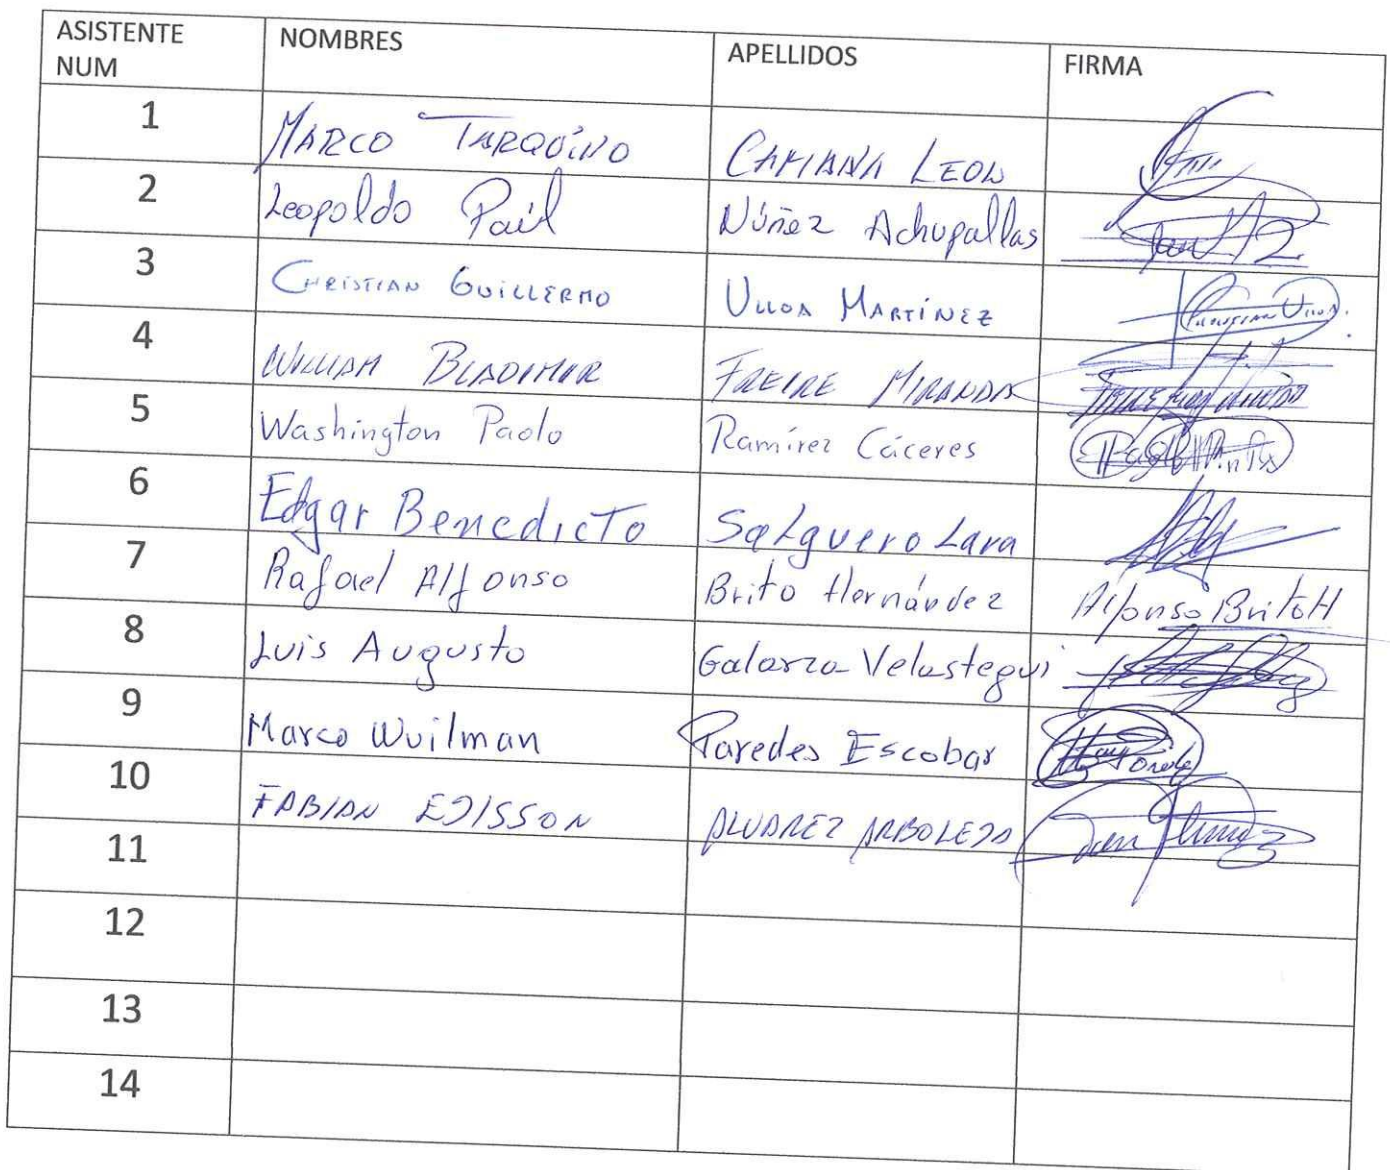 ASISTENTE NUM NOMBRES APELLIDOS FIRMA
1 MARCO TARQUINO CAMANA LEON
2 Leopoldo Paúl Núñez Achupallas
3 CHRISTIAN GUILLERMO ULLOA MARTÍNEZ
4 WILLIAM BLADIMIR FREIRE MIRANDA
5 Washington Paolo Ramírez Cáceres
6 Edgar Benedicto Salguero Lara
7 Rafael Alfonso Brito Hernández Alfonso Brito H
8 Luis Augusto Galarza Velastegui
9 Marco Wuilman Paredes Escobar
10 FABIAN EDISSON ALVAREZ ARBOLEDA
11
12
13
14